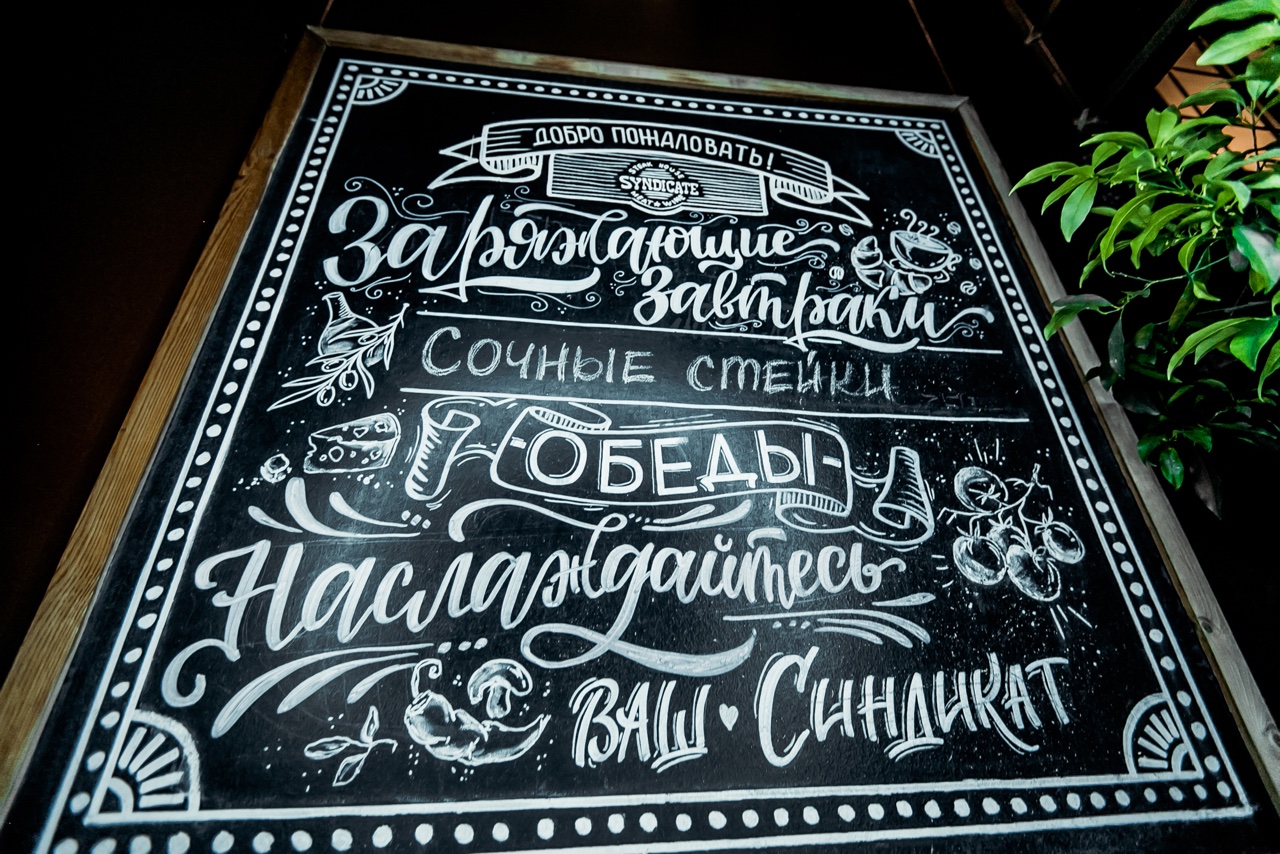 ДОБРО ПОЖАЛОВАТЬ!
STEAK HOUSE
SYNDICATE
MEAT & WINE
Заряжающие
завтраки
СОЧНЫЕ СТЕЙКИ
-ОБЕДЫ-
Наслаждайтесь
ВАШ СИНДИКАТ